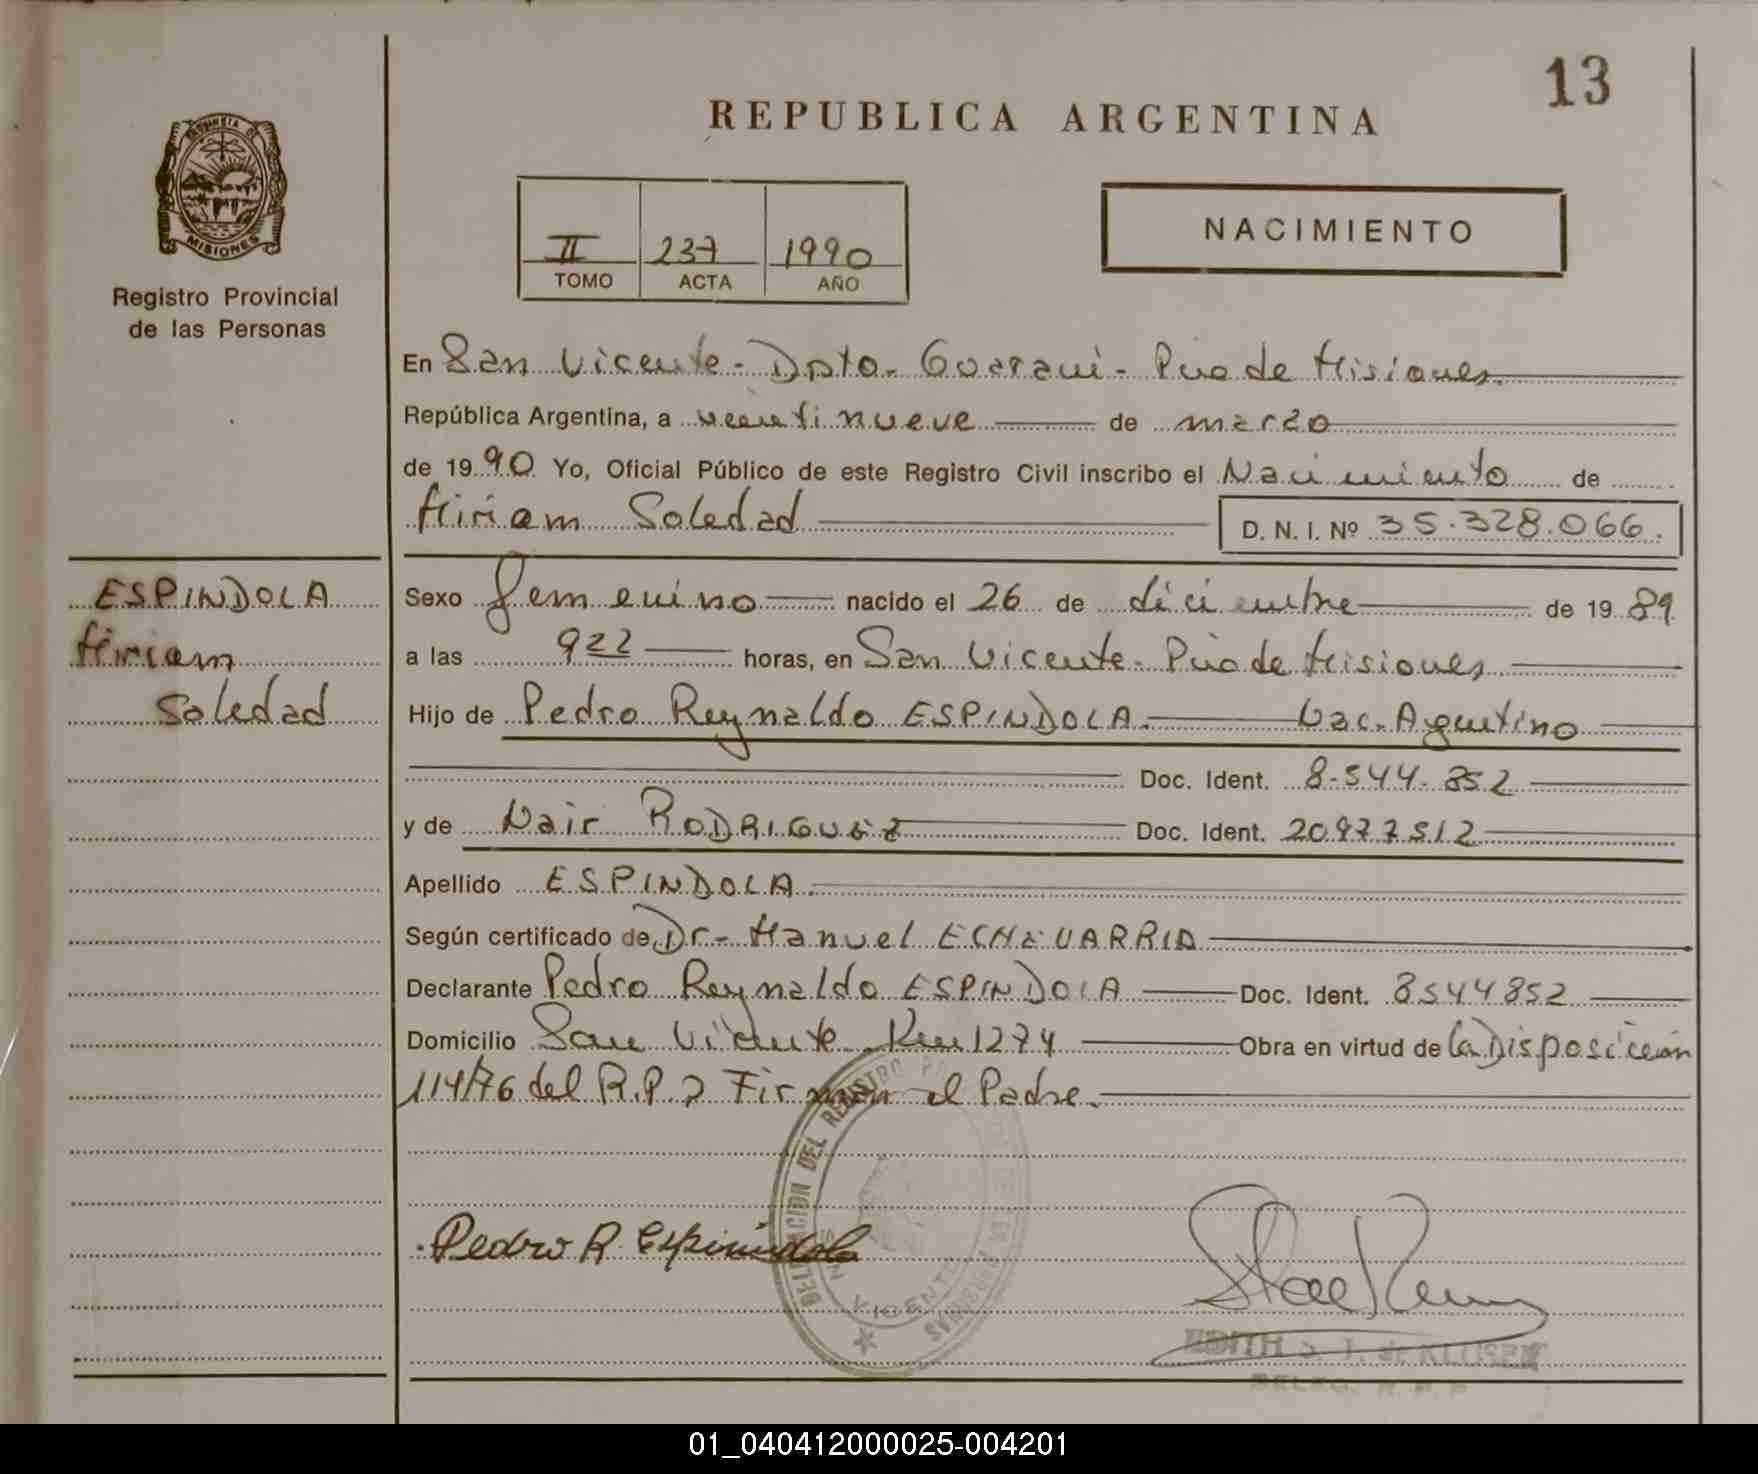 13
REPUBLICA ARGENTINA
NACIMIENTO
II 237 1990
TOMO ACTA AÑO
MISIONES
Registro Provincial
de las Personas
En San Vicente - Dpto. Guaraní - Pcia de Misiones
República Argentina, a veintinueve de marzo
de 1990 Yo, Oficial Público de este Registro Civil inscribo el Nacimiento de
Miriam Soledad D. N. I. Nº 35.328.066.
ESPINDOLA
Miriam
Soledad
Sexo femenino nacido el 26 de diciembre de 1989
a las 922 horas, en San Vicente - Pcia de Misiones
Hijo de Pedro Reynaldo ESPINDOLA. Nac. Argentino
Doc. Ident. 8.544.852
y de Nair RODRIGUEZ Doc. Ident. 20.977.512
Apellido ESPINDOLA.
Según certificado de Dr. Manuel ECHEVARRIA
Declarante Pedro Reynaldo ESPINDOLA Doc. Ident. 8544852
Domicilio San Vicente Km 1274 Obra en virtud de la Disposición
114/76 del R.P.P Firman el Padre.
DELEGACION DEL REGISTRO PROVINCIAL DE LAS PERSONAS
SAN VICENTE
Pedro R. Espinindola
EDITH de KLUSEN
DELEG. R. P. P
01_040412000025-004201